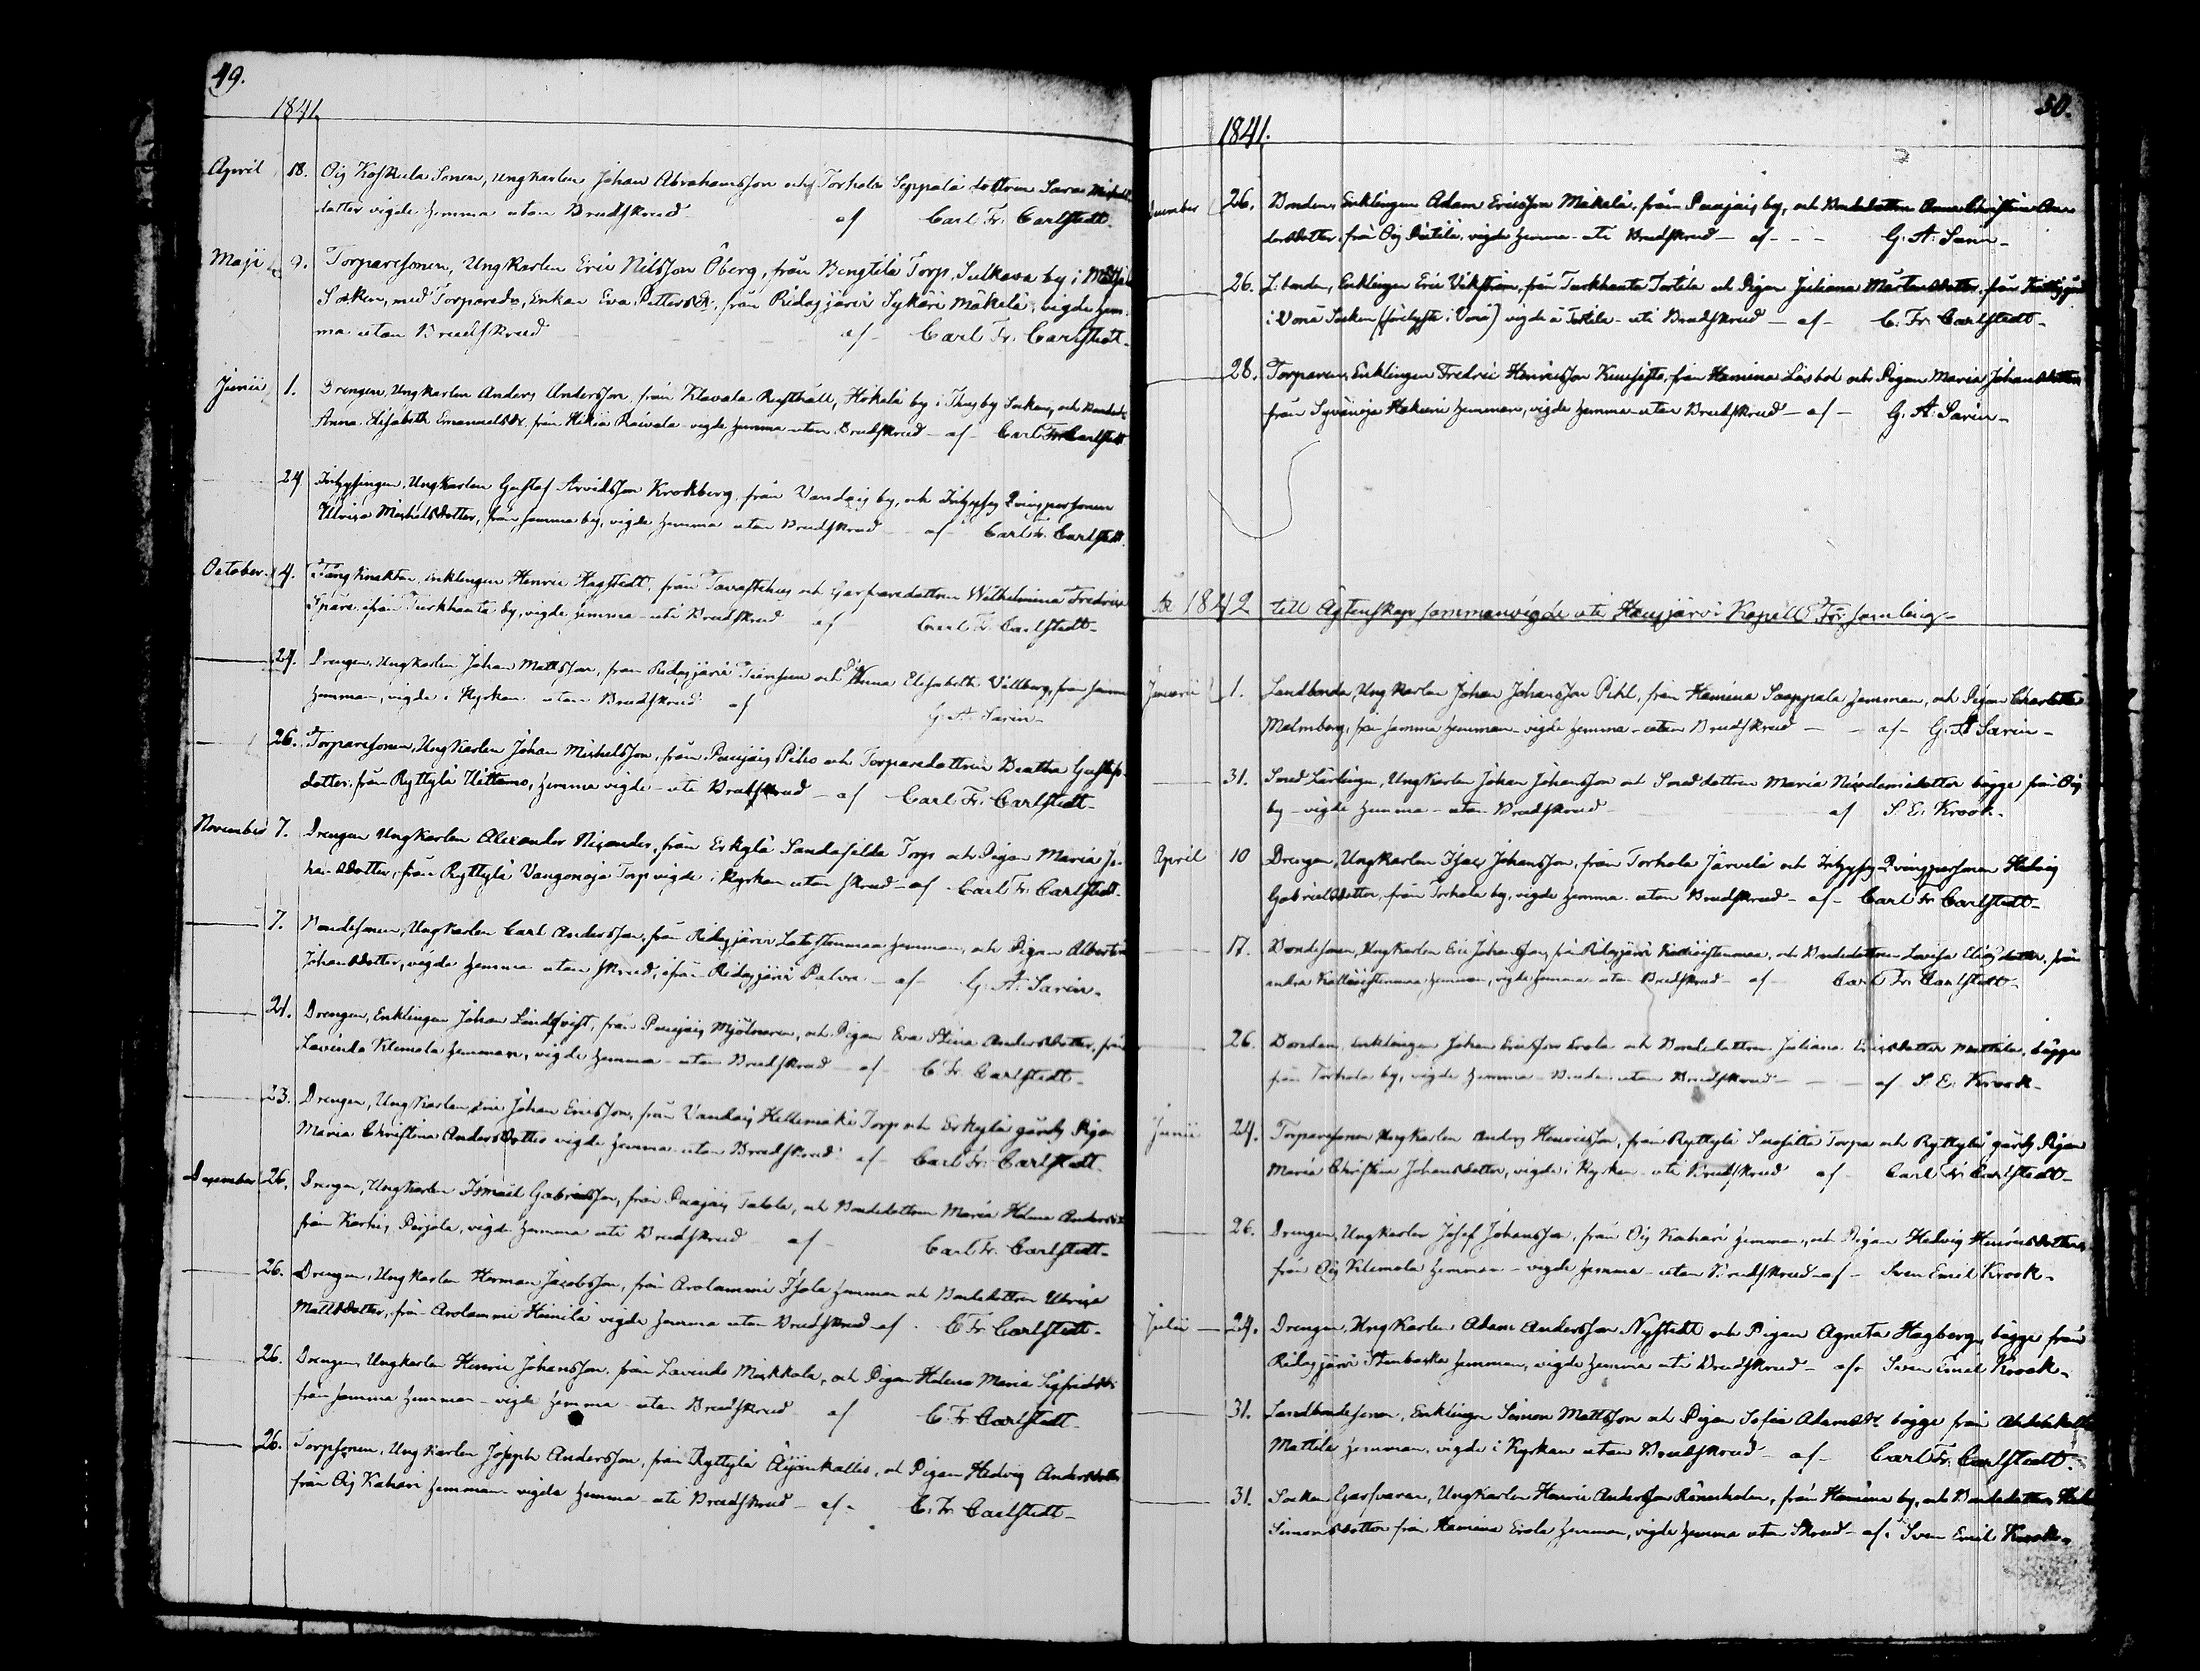 49.
1841.
April 18. Oij Koskela Sonen, Ungkarlen Johan Abrahamsson och Torhola Seppälä dottren Sara Michels
dotter vigde hemma utan Brudskrud af Carl Fr. Carlstedt.
Maji 9. Torparesonen, Ungkarlen Eric Nilsson Öberg, från Bengtilä Torp, Sulkava by i
Socken, med Torpared., Enkan Eva Pettersdr. från Ridasjärvi Sykäri Mäkelä, vigde hem-
ma utan Brudskrud af Carl Fr. Carlstedt.
Junii 1. Drengen, Ungkarlen Anders Andersson, från Klavala Rusthåll, Hökelä by i Thusby Socken, och
Anna Elisabeth Emanuelsdr. från Hikiä Raivala vigde hemma utan Brudskrud - af - Carl Fr. Carlstedt
24 Inhysingen, Ungkarlen Gustaf Arvidsson Krokberg, från Vandais by, och Inhyses Qvinspersonen
Ulrica Michelsdotter, från samma by, vigde hemma utan Brudskrud - af - Carl Fr. Carlstedt.
October 4. Fångknekten, enklingen Henric Hagstedt, från Tavastehus och Garfvaredottren Wilhelmina Fredrica
Spåre ifrån Turkhauta by, vigde hemma uti Brudskrud af Carl Fr. Carlstedt
24. Drengen, Ungkarlen Johan Mattsson, från Ridasjärvi och Pig. Anna Elisabeth Vällberg, från samma
hemman, vigde i Kyrkan utan Brudskrud af G. A. Sarin
26. Torparesonen, Ungkarlen Johan Michelsson, från Pausjais Pihs och Torparedottren Beatha Gustafs-
dotter, från Ryttylä Uittamo, hemma vigde - uti Brudskrud - af Carl Fr. Carlstedt
November 7. Drengen Ungkarlen Alexander Nicander, från Erkylä Sandafelda Torp och Pigan Maria Jo-
hansdotter, från Ryttylä Torp vigde i Kyrkan utan skrud - af Carl Fr. Carlstedt.
7. Bondesonen, Ungkarlen Carl Andersson, från Ridasjärvi hemman, och Pigan Albertina
Johansdotter, vigde hemma utan skrud, ifrån Ridasjärvi Palva - af - G. A. Sarin.
21. Drengen, Enklingen Johan Lindqvist, från Pausjais Mjölnaren, och Pigan Eva Stina Andersdotter, från
Lavinda Klemola hemman, vigde hemma - utan Brudskrud - af - C. Fr. Carlstedt.
23. Drengen, Ungkarlen Johan Ericsson, från Vandais Torp och Erkylä gårds Pigan
Maria Christina Andersdotter vigde hemma utan Brudskrud af Carl Fr. Carlstedt.
December 26. Drengen, Ungkarlen Ismael Gabrielsson, från Pausjais Takala, och Bondedottren Maria Helena Andersdr.
från Karhis Pirjola, vigde hemma uti Brudskrud af - Carl Fr. Carlstedt
26. Drengen, Ungkarlen Herman Jacobsson, från Arolammi Isola hemman och Bondedottren Ulrica
Mattsdotter, från Arolammi Heimilä vigde hemma utan Brudskrud af - C. Fr. Carlstedt.
26. Drengen, Ungkarlen Henric Johansson, från Lavinda Miekkola, och Pigan Helena Maria Sigfridsdr.
från samma hemman - vigde hemma - utan Brudskrud af C. Fr. Carlstedt
26. Torpsonen, Ungkarlen Joseph Andersson, från Ryttylä Äijänkallio, och Pigan Hedvig Andersdotter
från Oij Kahari hemman - vigde hemma - uti Brudskrud - af - C. Fr. Carlstedt
50.
1841.
December 26. Bonden, Enklingen Adam Ericsson Mäkelä, från Pausjais by, och Bondedottren Anna Christina An-
dersdotter, från Oij Pätilä, vigde hemma - uti Brudskrud - af - G. A. Sarin
26. L.bonden, Enklingen Eric Vikström, från Turkhauta Tortila och Pigan Juliana Mårtensdotter, från
i Vånå Socken (förelyste i Vånå) vigde å Tortila - uti Brudskrud - af - C. Fr. Carlstedt
28. Torparen, Enklingen Fredric Henricsson Kuusisto, från Hamina och Pigan Maria Johansdotter
från Syvänoja Hakuni hemman, vigde hemma utan Brudskrud - af - G. A. Sarin
År 1842 till Ägtenskap sammanvigde uti Hausjärvi Kapell För-samling
Januarii 1. Landbonde, Ungkarlen Johan Johansson Pihl, från Hamina Saappala hemman, och Pigan Charlotta
Malmberg, från samma hemman - vigde hemma - utan Brudskrud - af - G. A. Sarin
31. Smed Lärlingen, Ungkarlen Johan Johansson och Smeddottren Maria bägge från Oij
by - vigde hemma - utan Brudskrud af S. E. Krook.
April 10 Drengen, Ungkarlen Isac Johansson, från Torhola Järvelä och Inhyses Qvinspersonen Hedvig
Gabrielsdotter, från Torhola by, vigde hemma utan Brudskrud - af - Carl Fr. Carlstedt
17. Bondesonen, Ungkarlen Eric Johansson, från Ridasjärvi och Bondedottren Lovisa Eliasdotter, från
andra hemman, vigde hemma utan Brudskrud - af Carl Fr. Carlstedt
26. Bonden, enklingen Johan Ericsson Erola och Bondedottren Juliana Ericsdotter Mattila, bägge
från Torhola by, vigde hemma - utan Brudskrud - af S. E. Krook
Junii 24. Torparesonen Ungkarlen Anders Henricsson, från Ryttylä Torpa och Ryttylä gårds Pigan
Maria Christina Johansdotter, vigde i Kyrkan - uti Brudskrud af - Carl Fr. Carlstedt
26. Drengen, Ungkarlen Josef Johansson, från Oij Kahari hemman, och Pigan Hedvig Henricsdotter
från Oij Klemola hemman - vigde hemma - utan Brudskrud - af - Sven Emil Krook.
Julii 24. Drengen, Ungkarlen Adam Andersson Nystedt och Pigan Agneta Hagberg, bägge från
Ridasjärvi Stenbacka hemman, vigde hemma uti Brudskrud - af - Sven Emil Krook.
31. Landbondesonen, Enklingen Simon Mattsson och Pigan Sofia Adamsdr. bägge från
Mattila hemman, vigde i Kyrkan utan Brudskrud - af - Carl Fr. Carlstedt.
31. Socken Garfvaren, Ungkarlen Henric Andersson Rönnholm, från Hamina by, och Bondedottren
Simonsdotter från Hamina Erola hemman, vigde hemma utan Skrud - af - Sven Emil Krook.